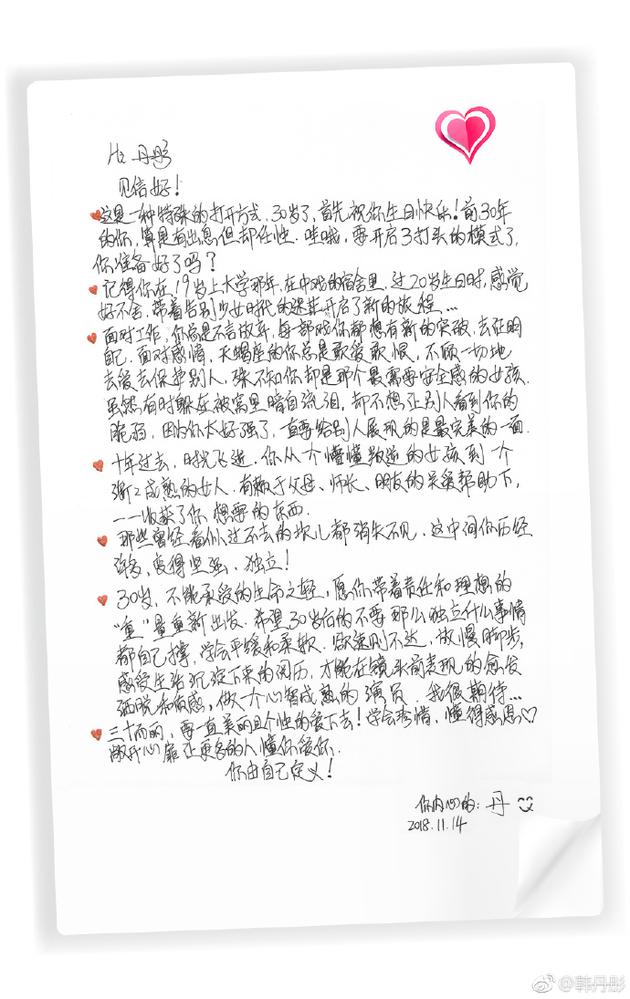 Hi 丹彤
见信好！
这是一种特殊的打开方式，30岁了，首先祝你生日快乐！前30年
的你，算是有出息但却任性，哇哦，要开启3打头的模式了，
你准备好了吗？
记得你在19岁上大学那年，在中戏的宿舍里，过20岁生日时，感觉
好不舍，带着告别少女时代的迷茫开启了新的旅程...
面对工作，你总是不言放弃，每部戏你都想有新的突破，去证明
自己，面对感情，天蝎座的你总是敢爱敢恨，不顾一切地
去爱去保护别人，殊不知你却是那个最需要安全感的女孩，
虽然有时躲在被窝里暗自流泪，却不想让别人看到你的
脆弱，因为你太好强了，一直要给别人展现的是最完美的一面
十年过去，时光飞逝，你从一个懵懂叛逆的女孩到一个
渐渐成熟的女人，有赖于父母、师长、朋友的关爱帮助下，
一一收获了你想要的东西
那些曾经看似过不去的坎儿都消失不见，这中间你历经
许多，变得坚强、独立！
30岁，不能承受的生命之轻，愿你带着责任和理想的
“重”量重新出发，希望30岁后的不要那么独立什么事情
都自己撑，学会平缓和柔软，欲速则不达，放慢脚步，
感受生活沉淀下来的阅历，才能在镜头前表现的愈发
洒脱和质感，做一个心智成熟的演员，我很期待...
三十而丽，要一直美丽且个性的爱下去！学会珍惜，懂得感恩♡
敞开心扉让更多的人懂你爱你
你由自己定义！
你内心的：丹
2018.11.14
@韩丹彤